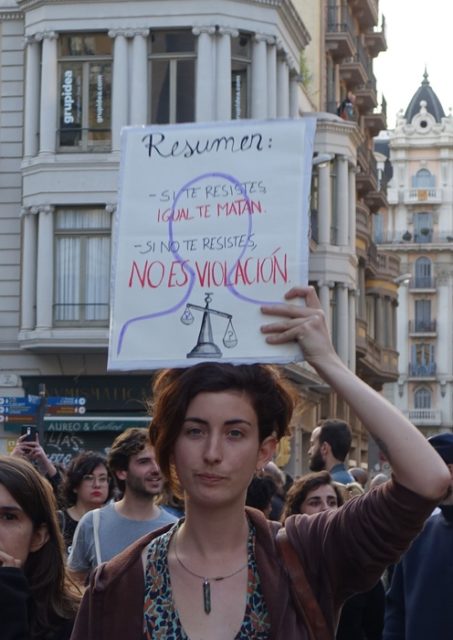 Resumen:
- SI TE RESISTES,
IGUAL TE MATAN.
- SI NO TE RESISTES,
NO ES VIOLACIÓN.
grupidea
grupidea.com
NUMISMATICA
AUREO & Calicó